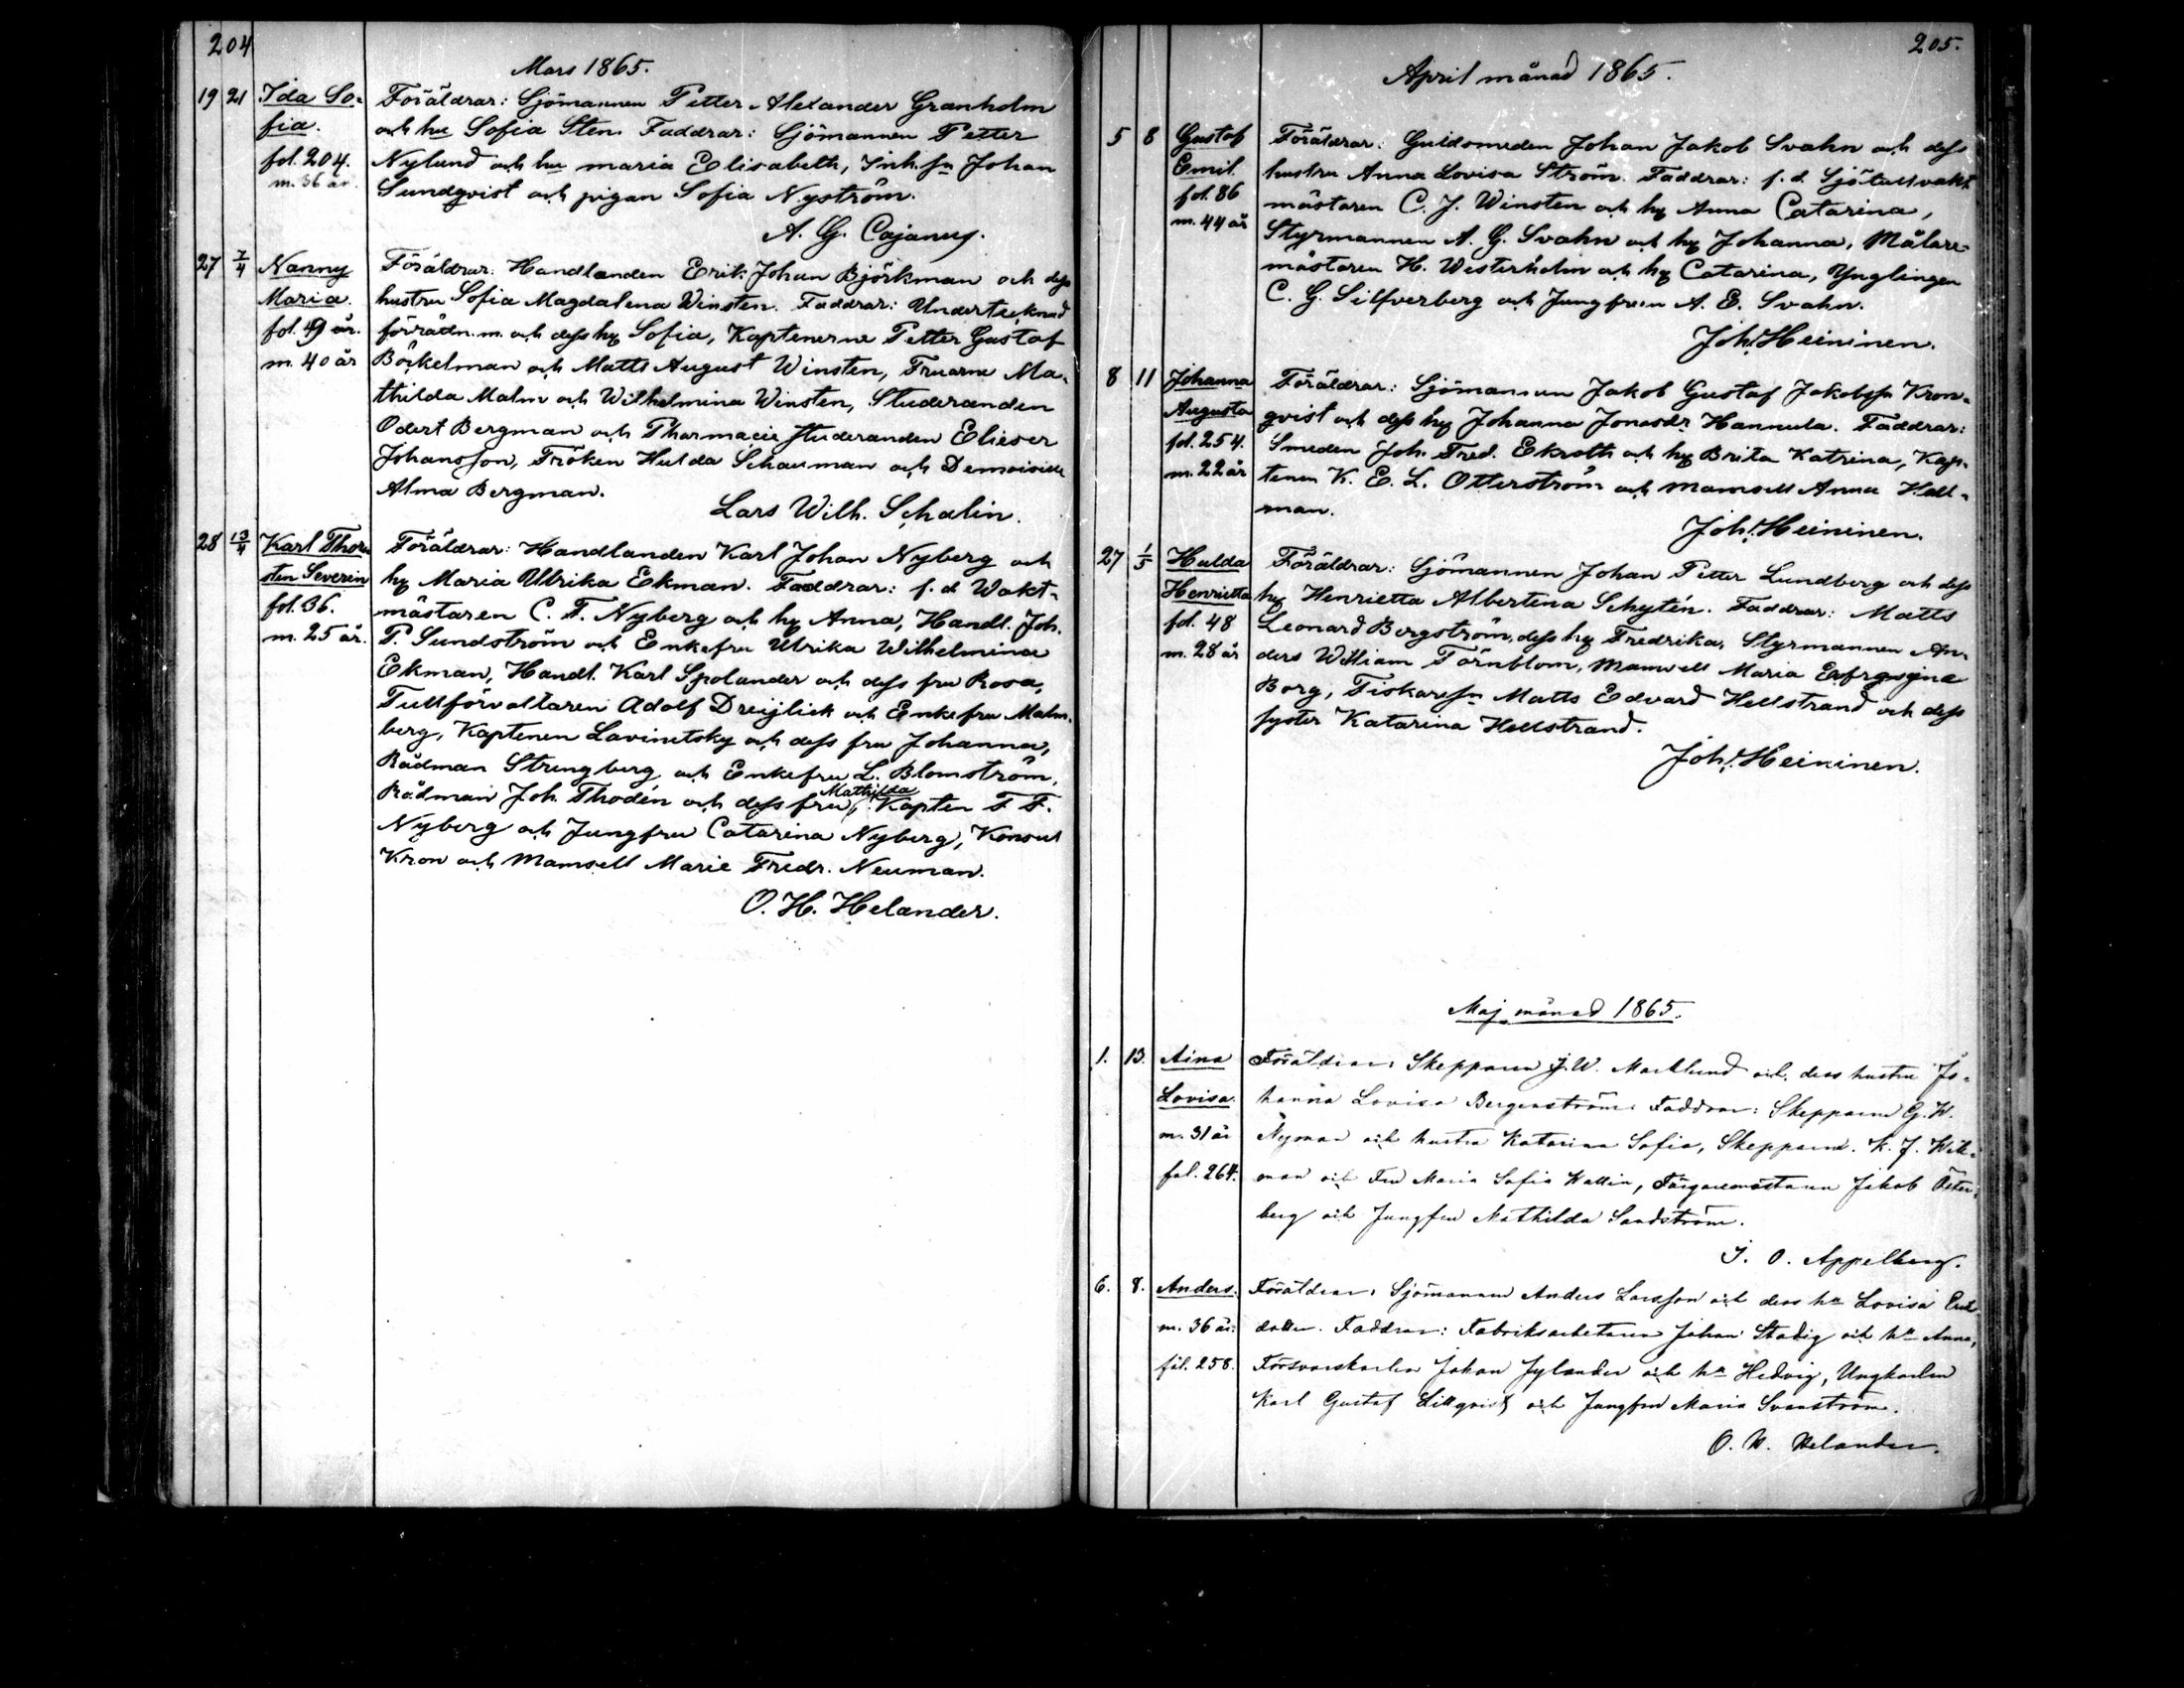 204
Mars 1865.
19 21 Ida So-
fia.
fol. 204.
m. 36 år.
Föräldrar: Sjömannen Petter Alexander Granholm
och hu Sofia Sten. Faddrar: Sjömannen Petter
Nylund och hu maria Elisabeth, Inh.sn Johan
Sundqvist och pigan Sofia Nyström.
A. G. Cajanus.
27 7/4 Nanny
Maria.
fol. 49 år.
m. 40 år
Föräldrar: Handlanden Erik Johan Björkman och dess
hustru Sofia Magdalena Winsten. Faddrar: Undertecknad
förrädn.m. och dess hu Sofia, Kaptenerne Petter Gustaf
Böckelman och Matts August Winsten, Fruarne Ma-
thilda Malm och Wilhelmina Winsten, Studeranden
Odert Bergman och Pharmacie studeranden Elieser
Johansson, Fröken Hulda Schauman och Demoiselle
Alma Bergman.
Lars Wilh. Schalin.
28 13/4 Karl Thor-
sten Severin
fol. 36.
m. 25 år.
Föräldrar: Handlanden Karl Johan Nyberg och
hu Maria Ulrika Ekman. Faddrar: f.d. Wakt-
mästaren C. F. Nyberg och hu Anna, Handl. Joh.
P. Sundström och Enkefru Ulrika Wilhelmina
Ekman, Handl. Karl Spolander och dess fru Rosa,
Tullförvaltaren Adolf Dreijlick och Enkefru Malm-
berg, Kaptenen Lavinetsky och dess fru Johanna,
Rådman Strengberg och Enkefru L. Blomström,
Rådman Joh. Thodén och dess fru Mathilda, Kapten F F.
Nyberg och Jungfru Catarina Nyberg, Konsul
Kron och Mamsell Marie Fredr. Neuman.
O. H. Helander.
205.
April månad 1865.
5 8 Gustaf
Emil
fol. 86
m. 44 år
Föräldrar: Guldsmeden Johan Jakob Svahn och dess
hustru Anna Lovisa Ström. Faddrar: f.d. Sjötullvakt
mästaren C. J. Winsten och hu Anna Catarina,
Styrmannen A. G. Svahn och hu Johanna, Målare-
mästaren H. Westerholm och hu Catarina, Ynglingen
C. G. Silfverberg och Jungfrun A. E. Svahn.
Joh. Heininen.
8 11 Johanna
Augusta
fol. 254.
m. 22 år
Föräldrar: Sjömannen Jakob Gustaf Jakobssn Kron-
qvist och dess hu Johanna Jonasdr Hannula. Faddrar:
Smeden Joh. Fred. Ekroth och hu Brita Katrina, Kap-
tenen K. E. L. Otterström och Mamsell Anna Hell-
man.
Joh. Heininen.
27 1/5 Hulda
Henrietta
fol. 48
m. 28 år
Föräldrar: Sjömannen Johan Petter Lundberg och dess
hu Henrietta Albertina Schytén. Faddrar: Matts
Leonard Bergström, dess hu Fredrika, Styrmannen An-
ders William Törnblom, Mamsell Maria
Borg, Fiskaresn Matts Edvard Hellstrand och dess
syster Katarina Hellstrand.
Joh. Heininen.
Maj månad 1865.
1. 13. Aina
Lovisa.
m. 31 år
fol. 264.
Föräldrar: Skepparen J. W. Marklund och dess hustru Jo-
hanna Lovisa Bergenström. Faddrar: Skepparen G. W.
Nyman och hustru Katarina Sofia, Skepparen K. J. Wik-
man och Fru Maria Sofia Wallin, Färgaremästaren Jakob Öster-
berg och Jungfru Mathilda Sandström.
J. O. Appelberg.
6. 8. Anders.
m. 36 år.
fol. 258.
Föräldrar: Sjömannen Anders Larsson och dess hu Lovisa
dotter. Faddrar: Fabriksarbetaren Johan Stadig och hu Anna,
Försvarskarlen Johan Jylander och hu Hedvig, Ungkarlen
Karl Gustaf Lillqvist och Jungfru Maria Svanström.
O. H. Helander.